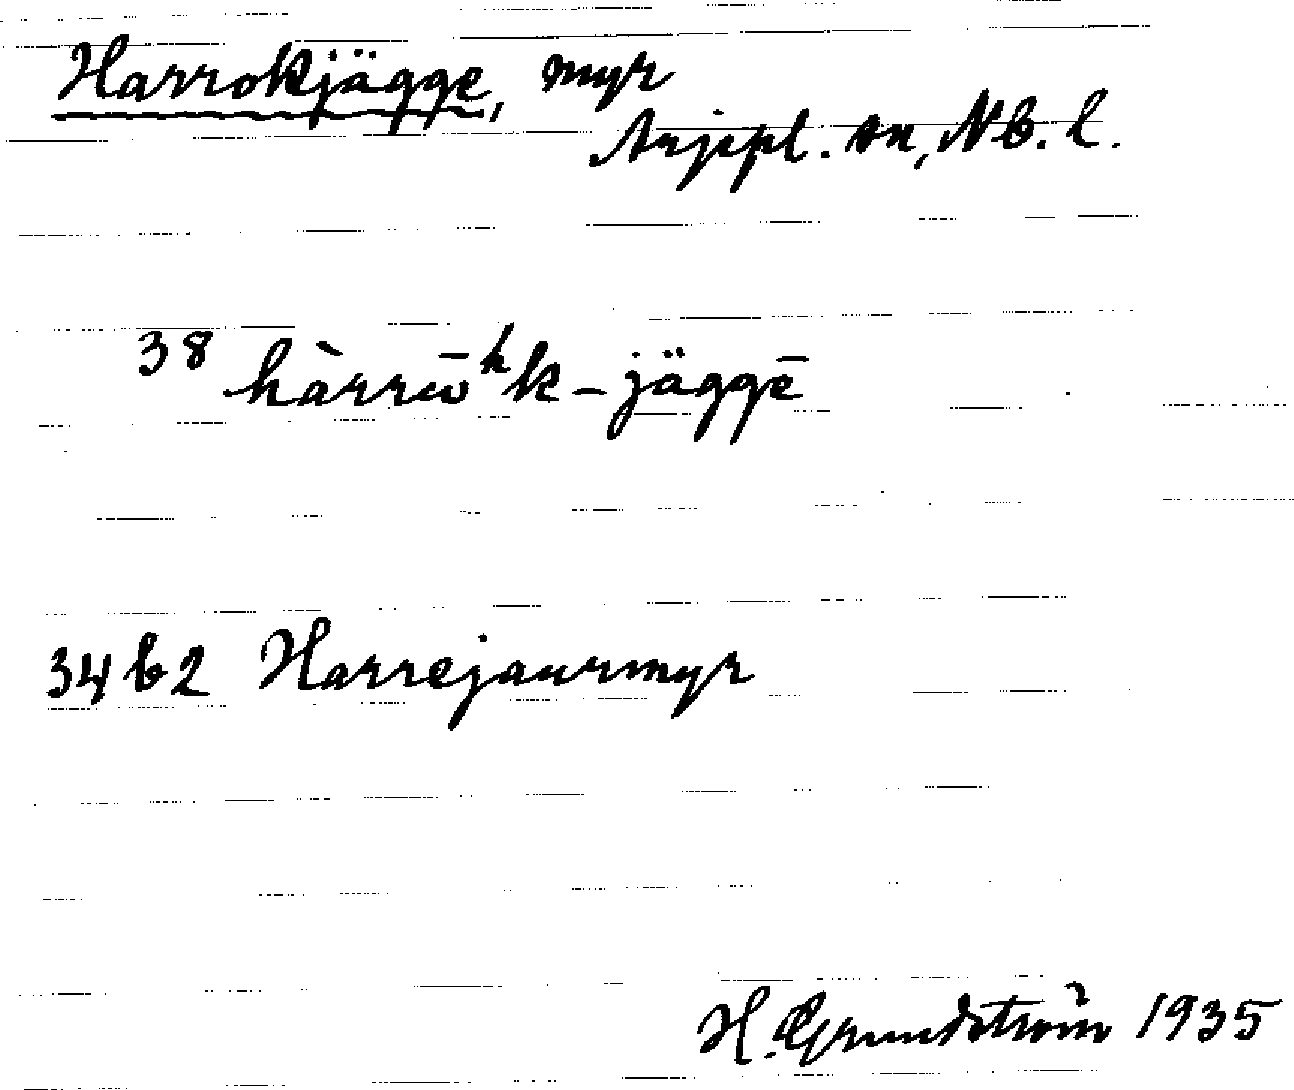 Harrokjägge, myr
Arjepl. sn, Nb. l.
38 hàrrω̄ʰk-jäggē
34 b2 Harrejaurmyr
H. Grundström 1935